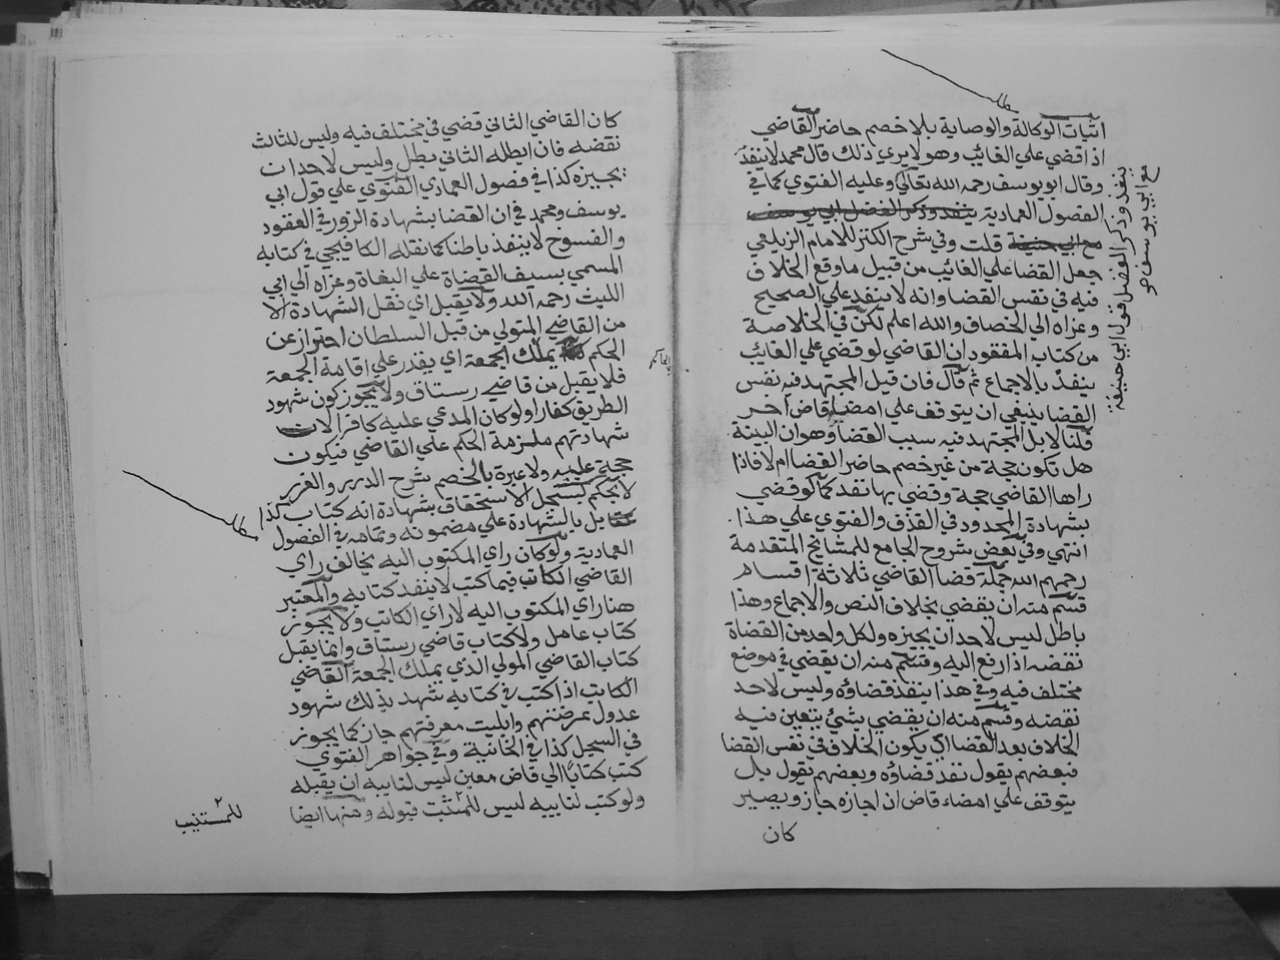 اثبات الوكالة والوصاية بلا خصم حاضر القاضي
اذا قضي علي الغائب وهو لا يري ذلك قال محمد لا ينفذ
وقال ابو يوسف رحمه الله تعالي وعليه الفتوي كما في
الفصول العمادية ينفذ وذكر الفضل ابي يوسف
مع ابي حنيفة قلت وفي شرح الكنز للامام الزيلعي
جعل القضا علي الغائب من قبيل ما وقع الخلاف
فيه في نفس القضا وانه لا ينفذ علي الصحيح
وعزاه الي الخصاف والله اعلم لكن في الخلاصة
من كتاب المفقود ان القاضي لو قضي علي الغائب
ينفذ بالاجماع ثم قال فان قيل المجتهد فيه نفس
القضا ينبغي ان يتوقف علي امضا قاض اخر
قلنا لا بل المجتهد فيه سبب القضا وهو ان البينة
هل تكون حجة من غير خصم حاضر القضا ام لا فاذا
راها القاضي حجة وقضي بها نفذ كما لو قضي
بشهادة المحدود في القذف والفتوي علي هذا
انتهي وفي بعض شروح الجامع للمشائخ المتقدمة
رحمهم الله جملة قضا القاضي ثلاثة اقسام
قسم منه ان يقضي بخلاف النص والاجماع وهذا
باطل ليس لاحد ان يجيزه ولكل واحد من القضاة
نقضه اذا رفع اليه وقسم منه ان يقضي في موضع
مختلف فيه وفي هذا ينفذ قضاؤه وليس لاحد
نقضه وقسم منه ان يقضي بشئ يتعين فيه
الخلاف بعد القضا اي يكون الخلاف في نفس القضا
فبعضهم يقول نفذ قضاؤه وبعضهم يقول بل
يتوقف علي امضاء قاض ان اجازه جاز ويصير
كان
ينفذ وذكر الفضل قول ابي حنيفة
مع ابي يوسف
كان القاضي الثاني قضي في مختلف فيه وليس للثالث
نقضه فان ابطله الثاني بطل وليس لاحد ان
يجيزه كذا في فصول العمادي الفتوي علي قول ابي
يوسف ومحمد في ان القضا بشهادة الزور في العقود
والفسوخ لا ينفذ باطنا كما نقله الكافيجي في كتابه
المسمي بسيف القضاة علي البغاة وعزاه الي ابي
الليث رحمه الله ولا يقبل اي نقل الشهادة الا
من القاضي المتولي من قبل السلطان احتراز عن
الحكم يملك الجمعة اي يقدر علي اقامة الجمعة
فلا يقبل من قاضي رستاق ولا يجوز كون شهود
الطريق كفارا ولو كان المدعي عليه كافرا لان
شهادتهم ملزمة الحكم علي القاضي فيكون
حجة عليه ولا عبرة بالخصم شرح الدرر والغرر
لا يحكم بسجل الاستحقاق بشهادة انه كتاب كذا
بل بالشهادة علي مضمونه وتمامه في الفصول
العمادية ولو كان راي المكتوب اليه يخالف راي
القاضي الكاتب فيما كتب لا ينفذ كتابه والمعتبر
هنا راي المكتوب اليه لا راي الكاتب ولا يجوز
كتاب عامل ولا كتاب قاضي رستاق وانما يقبل
كتاب القاضي المولي الذي يملك الجمعة القاضي
الكاتب اذا كتب في كتابه شهد بذلك شهود
عدول عرفتهم واثبت معرفتهم جاز كما يجوز
في السجل كذا في الخانية وفي جواهر الفتوي
كتب كتابا الي قاض معين ليس لنايبه ان يقبله
ولو كتب لنايبه ليس للمثبت قبوله ومنها ايضا
الحاكم
للمستنيب